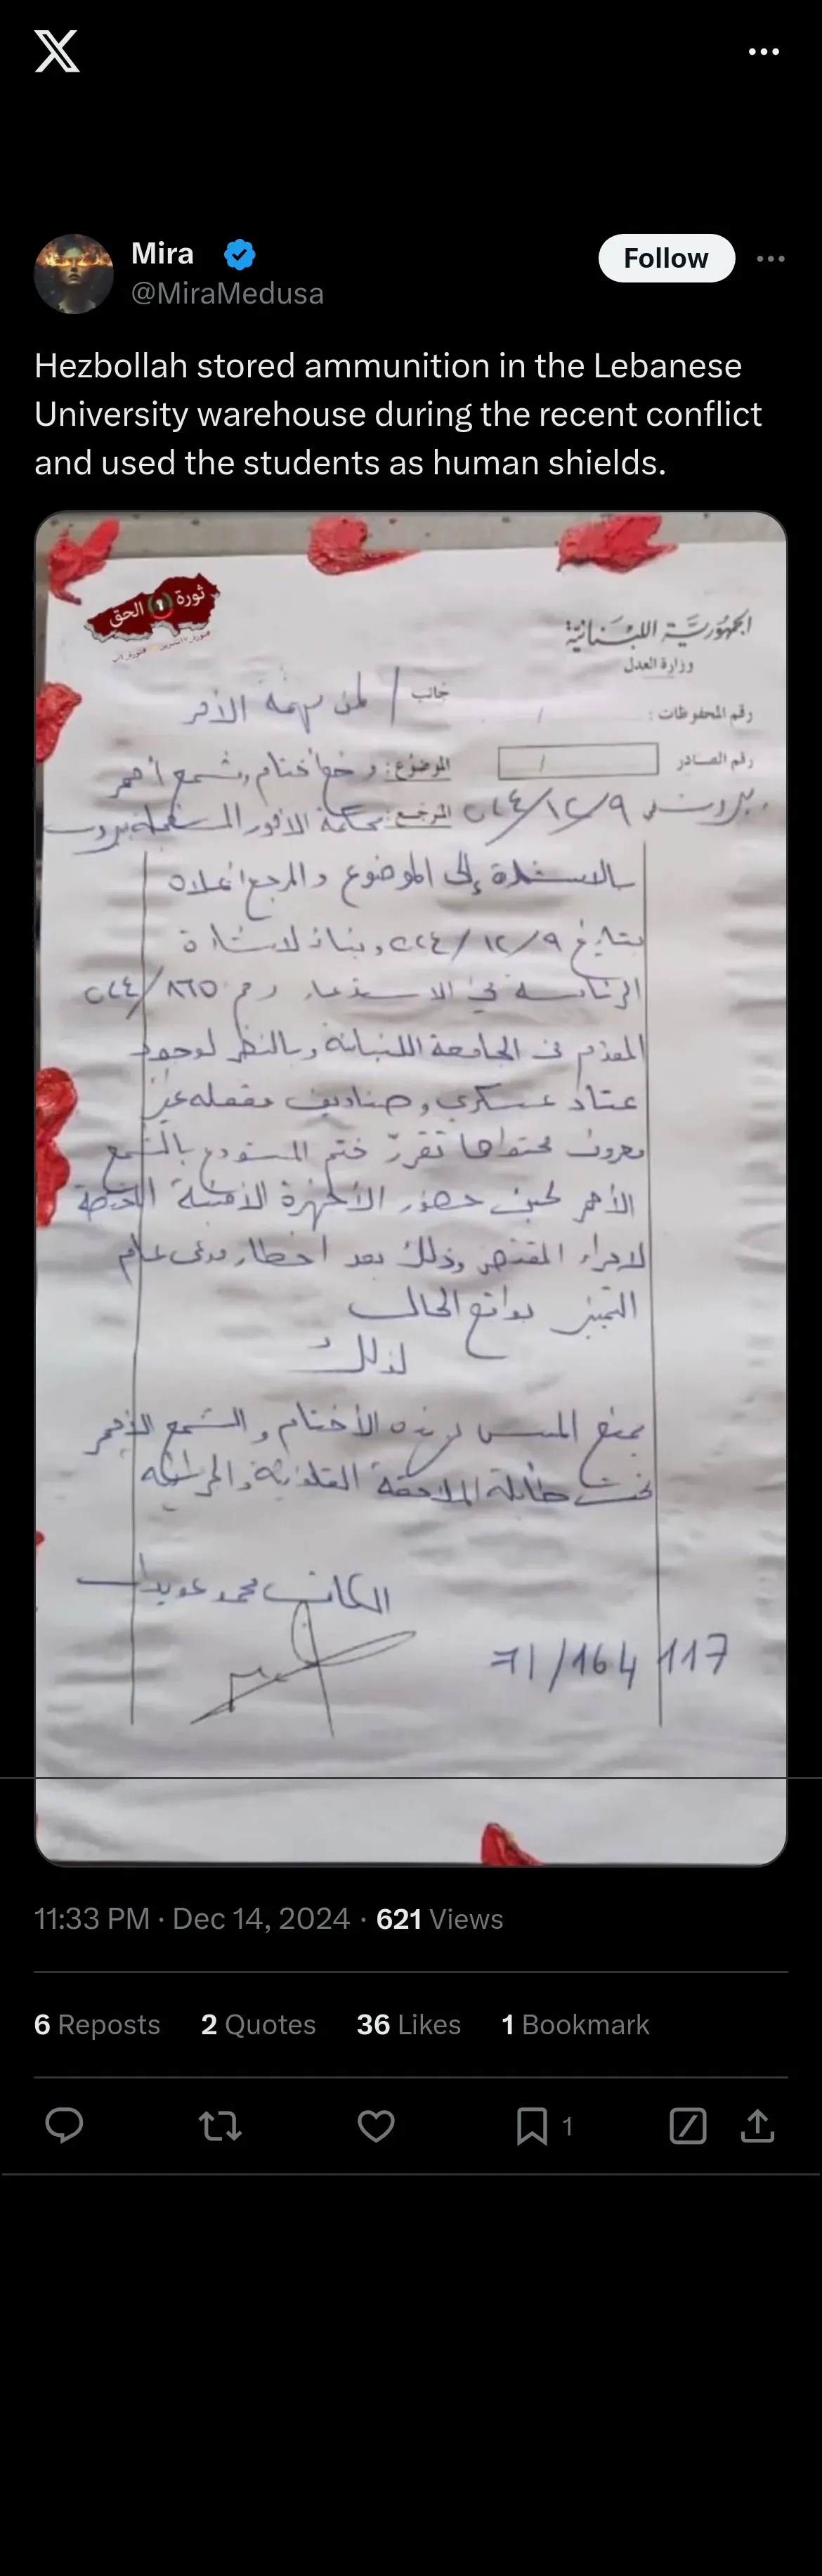 Mira
Follow
@MiraMedusa
Hezbollah stored ammunition in the Lebanese
University warehouse during the recent conflict
and used the students as human shields.
ثورة الحق
الجمهورية اللبنانية
وزارة العدل
جانب / لمن يهمه الأمر
رقم المحفوظات : /
الموضوع : وضع أختام وشمع أحمر
رقم الصادر /
المرجع : محكمة الأمور المستعجلة بيروت
بيروت في ٩/١٢/٢٠٢٤
بالاستنادة إلى الموضوع والمرجع أعلاه
بتاريخ ٩/١٢/٢٠٢٤ وبناء لاشارة
الرئاسة في الاستدعاء رقم ٨٦٥/٢٠٢٤
المقدم في الجامعة اللبنانية وبالنظر لوجود
عتاد عسكري وصناديق مقفله غير
معروف محتواها تقرر ختم المستودع بالشمع
الأحمر لحين حضور الأجهزة الأمنية المختصة
لاجراء المقتضى وذلك بعد اخطار مدعي عام
التمييز بواقع الحال
لذلك
يمنع المس بهذه الأختام والشمع الأحمر
تحت طائلة الملاحقة القانونية والجزائية
الكاتب محمد عويدات
71/164 117
11:33 PM · Dec 14, 2024 · 621 Views
6 Reposts 2 Quotes 36 Likes 1 Bookmark
1